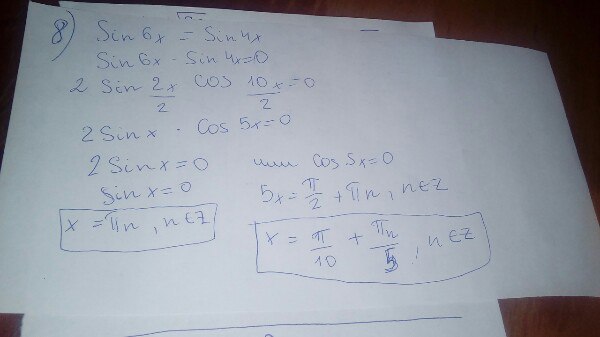 8) Sin 6x = Sin 4x
Sin 6x - Sin 4x = 0
2 Sin 2x/2 cos 10x/2 = 0
2 Sin x · Cos 5x = 0
2 Sin x = 0 или Cos 5x = 0
Sin x = 0 5x = π/2 + πn, n∈Z
x = πn, n∈Z x = π/10 + πn/5, n∈Z